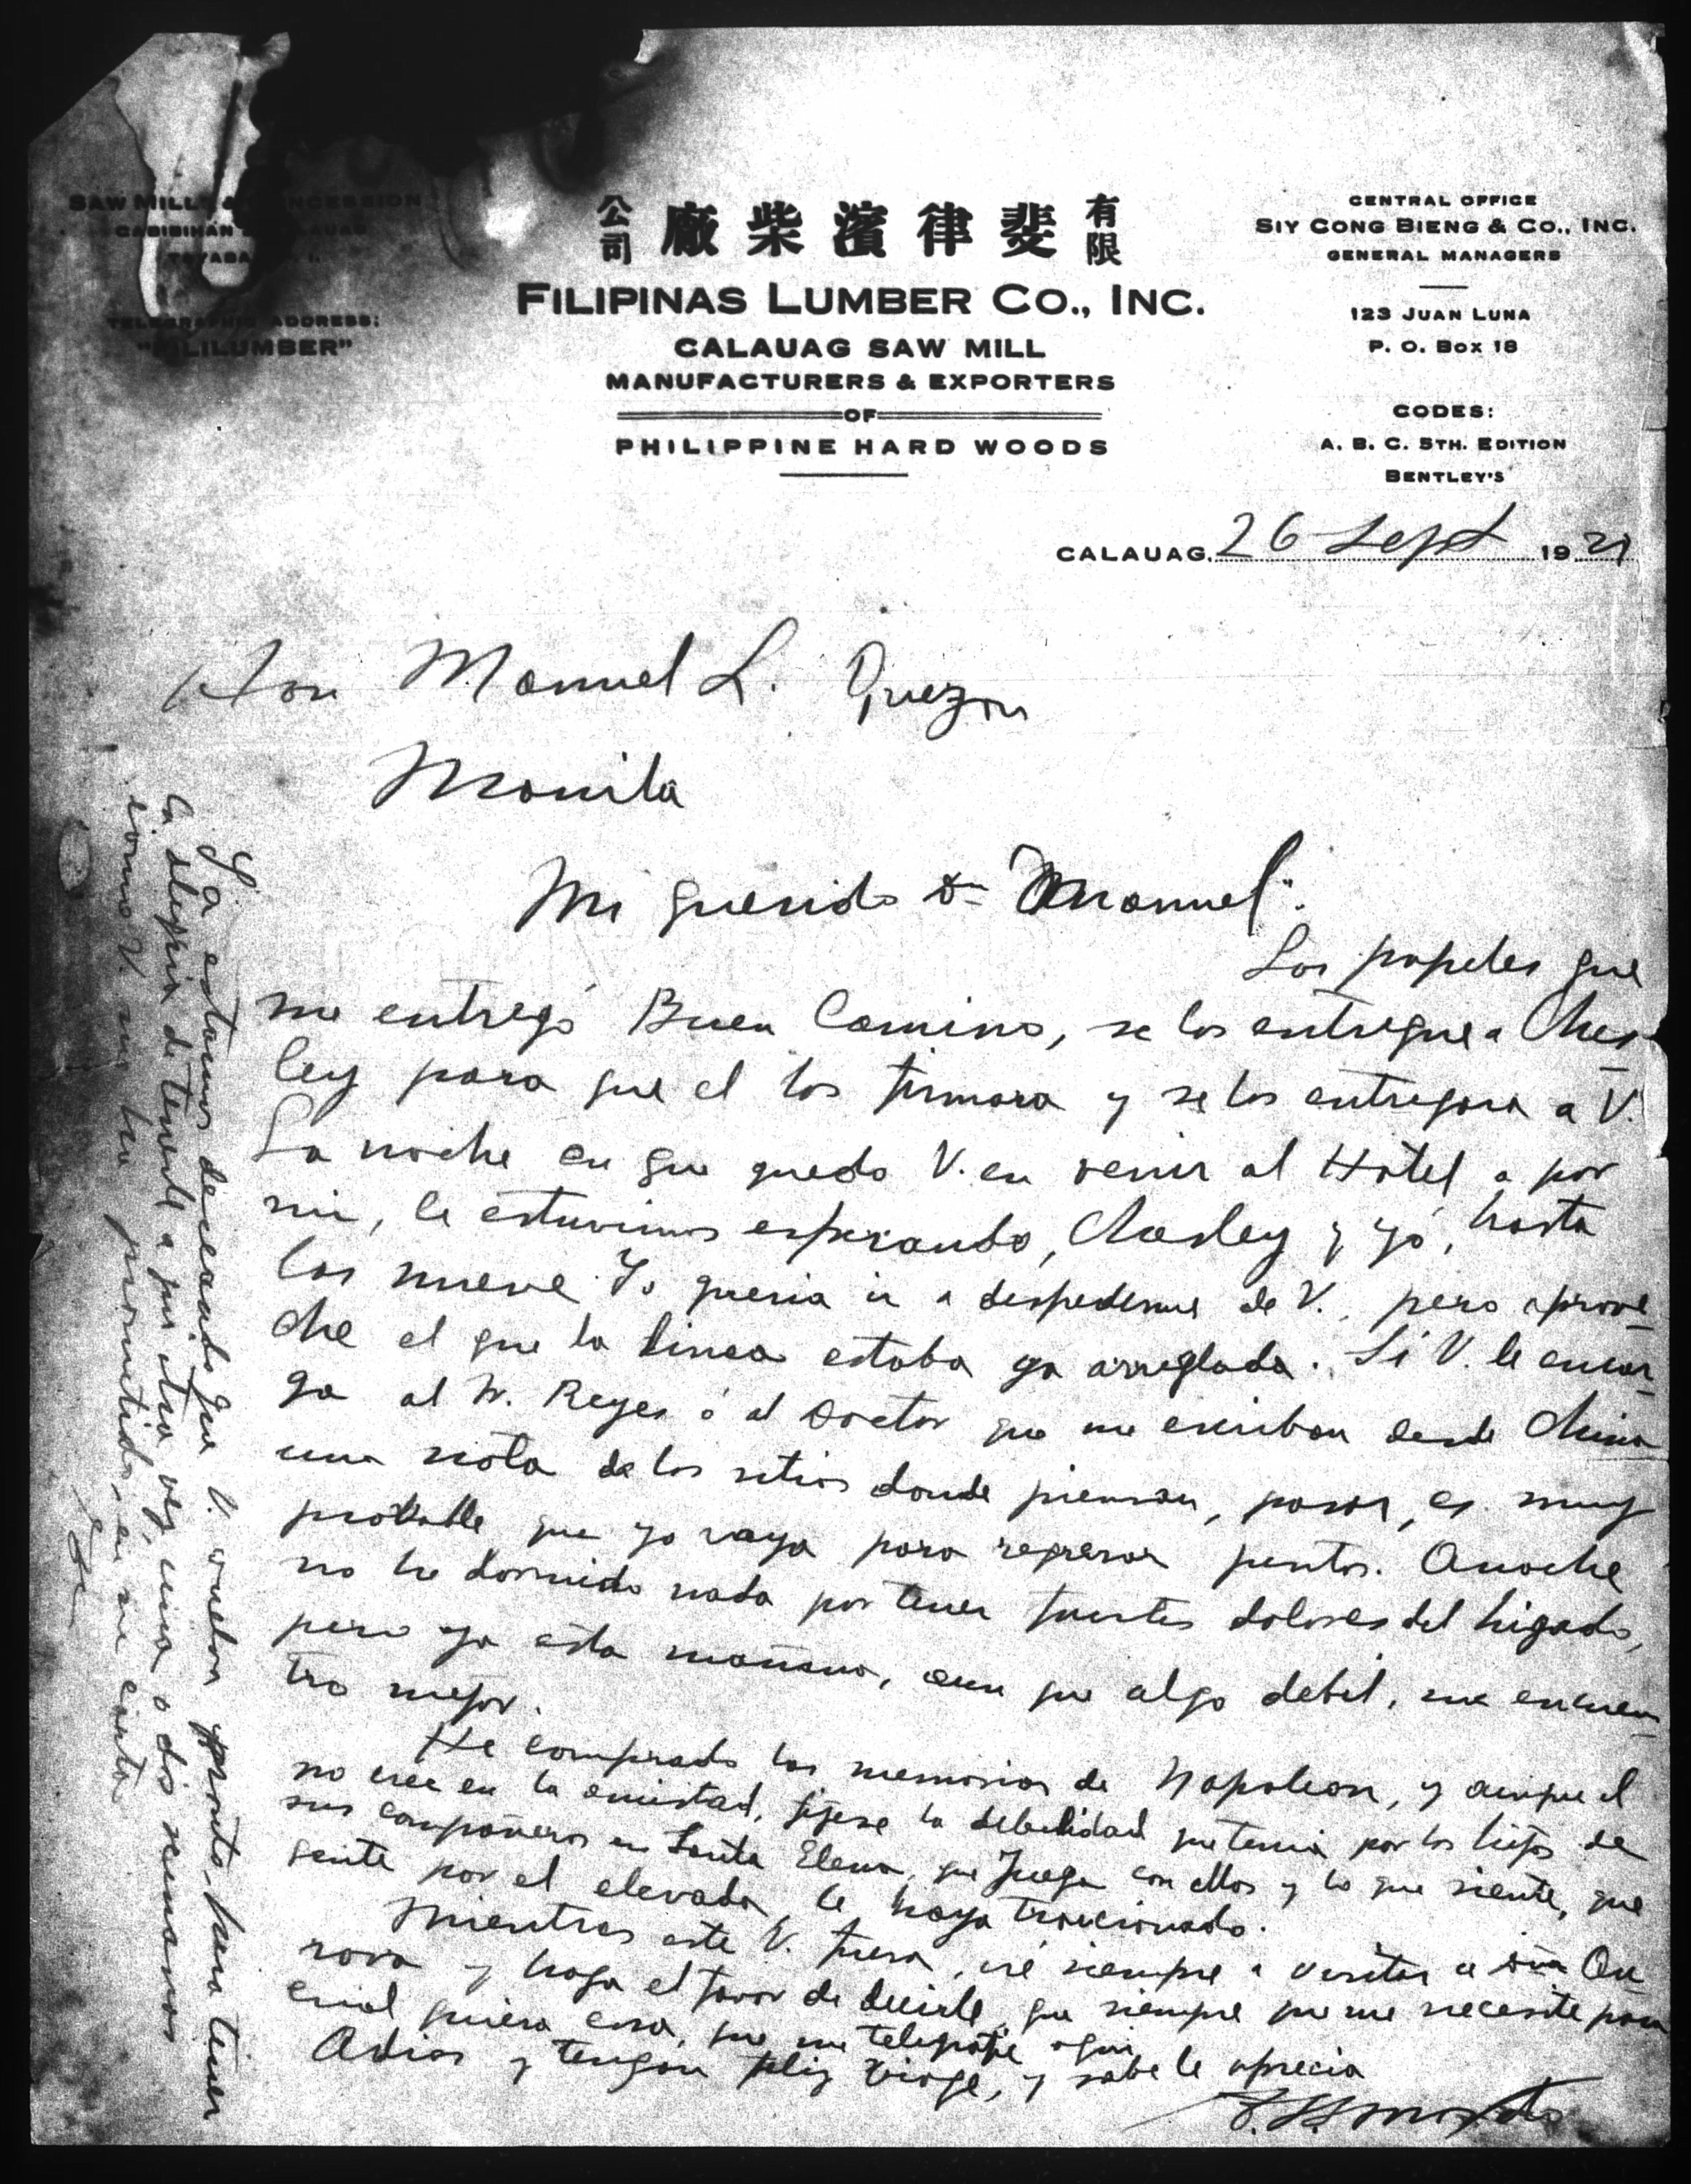 SAW MILL & CONCESSION
CABIBIHAN CALAUAG
TAYABAS P. I.
TELEGRAPHIC ADDRESS:
"FILILUMBER"
公司 廠柴濱律斐 有限
FILIPINAS LUMBER CO., INC.
CALAUAG SAW MILL
MANUFACTURERS & EXPORTERS
OF
PHILIPPINE HARD WOODS
CENTRAL OFFICE
SIY CONG BIENG & CO., INC.
GENERAL MANAGERS
123 JUAN LUNA
P. O. BOX 18
CODES:
A. B. C. 5TH. EDITION
BENTLEY'S
CALAUAG, 26 Sept 19
Hon Manuel L. Quezon
Manila
Mi querido Dn Manuel:
Los papeles que
me entregó Buen Camino, se los entregue a Ches-
ley para que el los firmara y se los entregara a V.
La noche en que quedo V. en venir al Hotel a por
mi, le estuvimos esperando, Chesley y yó, hasta
las nueve. Yo queria ir a despedirme de V., pero aprove-
che el que la linea estaba ya arreglada. Si V. le encar-
ga al Reyes ó al Doctor que me escriban desde China
una nota de los sitios donde piensan, pasar, es muy
probable que yo vaya para regresar juntos. Anoche
no he dormido nada por tener fuertes dolores del higado,
pero ya esta mañana, aun que algo debil, me encuen-
tro mejor.
He comprado las memorias de Napoleon, y aunque el
no cree en la amistad, fijese la debilidad que tenia por los hijos de
sus compañeros en Santa Elena, que juega con ellos y lo que siente, que
gente por el elevada, le haya traicionado.
Mientras este V. fuera, iré siempre a visitar a Dña Au-
rora y haga el favor de decirle, que siempre que me necesite para
cual quiera cosa, que me telegrafie aqui.
Adios y tengan feliz viaje, y sabe le aprecia
Ya estamos deseando que V. vuelva pronto, para tener
la alegria de tenerle a por otra vez, una o dos semanas
como V. me ha prometido, en su carta.